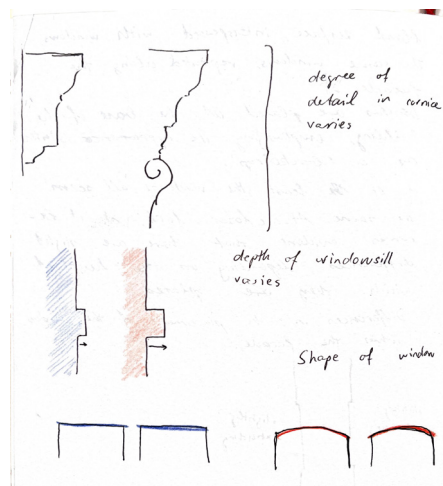 degree of
detail in cornice
varies
depth of windowsill
varies
Shape of window